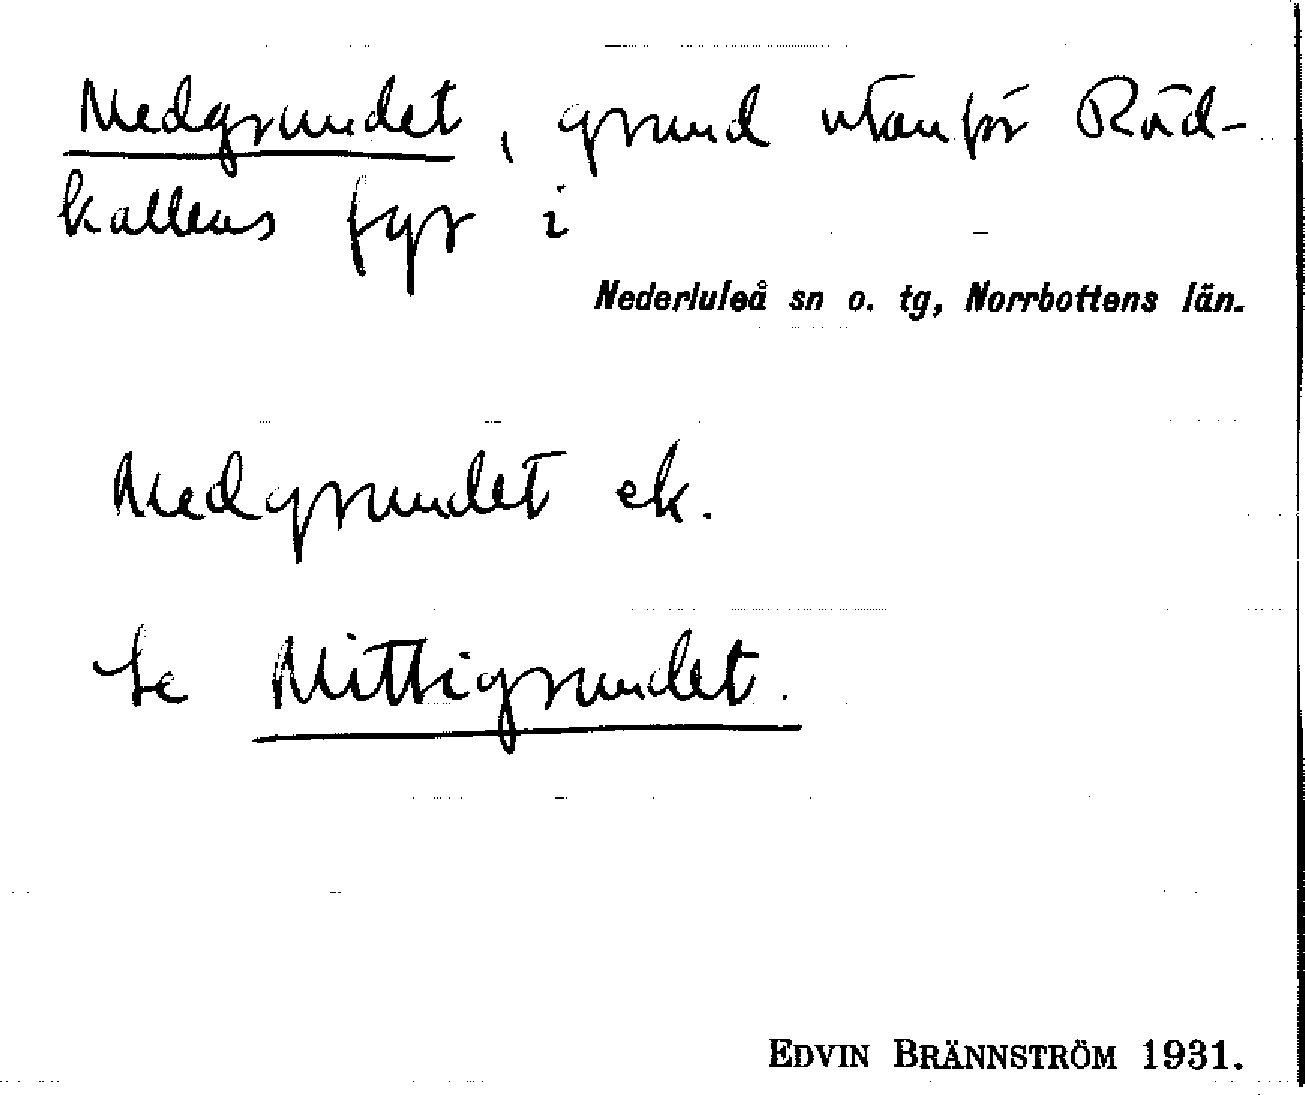 Medgrundet, grund utanför Röd-
kallens fyr i
Nederluleå sn o. tg, Norrbottens län.
Medgrundet ek.
Se Mittigrundet.
EDVIN BRÄNNSTRÖM 1931.